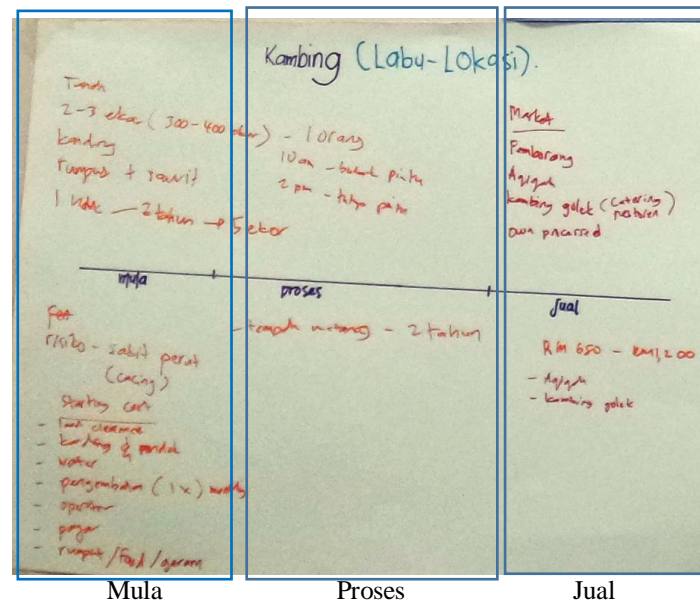 Kambing (Labu-Lokasi).
Tanah
2-3 ekar (300-400 ekor) - 1 orang
kandang
rumput + sawit
1 induk - 2 tahun → 5 ekor
10 am - buka pintu
2 pm - tutup pintu
Market
Pemborong
Aqiqah
kambing golek (catering restoren)
own processed
mula
proses
jual
risiko - sakit perut
(cacing)
starting cost
- land clearance
- kandang & pondok
- water
- pengembala (1x)
- operator
- pagar
- rumput / food / garam
- tempoh matang - 2 tahun
RM 650 - RM1,200
- Aqiqah
- kambing golek
Mula
Proses
Jual